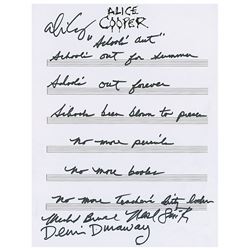 ALICE
COOPER
"School's out"
School's out for summer
School's out forever
Schools been blown to pieces
No more pencils
no more books
no more teacher's dirty looks
Michael Bruce Neal Smith
Dennis Dunaway